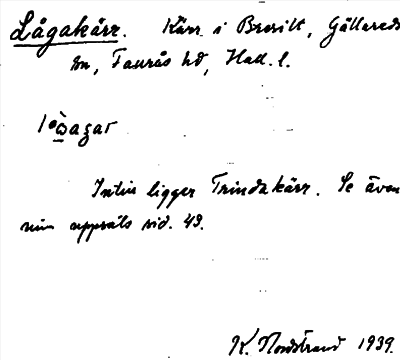 Lågakärr. Kärr i Brevilt, Gällareds
sn, Faurås hd, Hall. l.
Intill ligger Trindakärr. Se även
min uppsats sid. 43.
K. Nordstrand 1939.